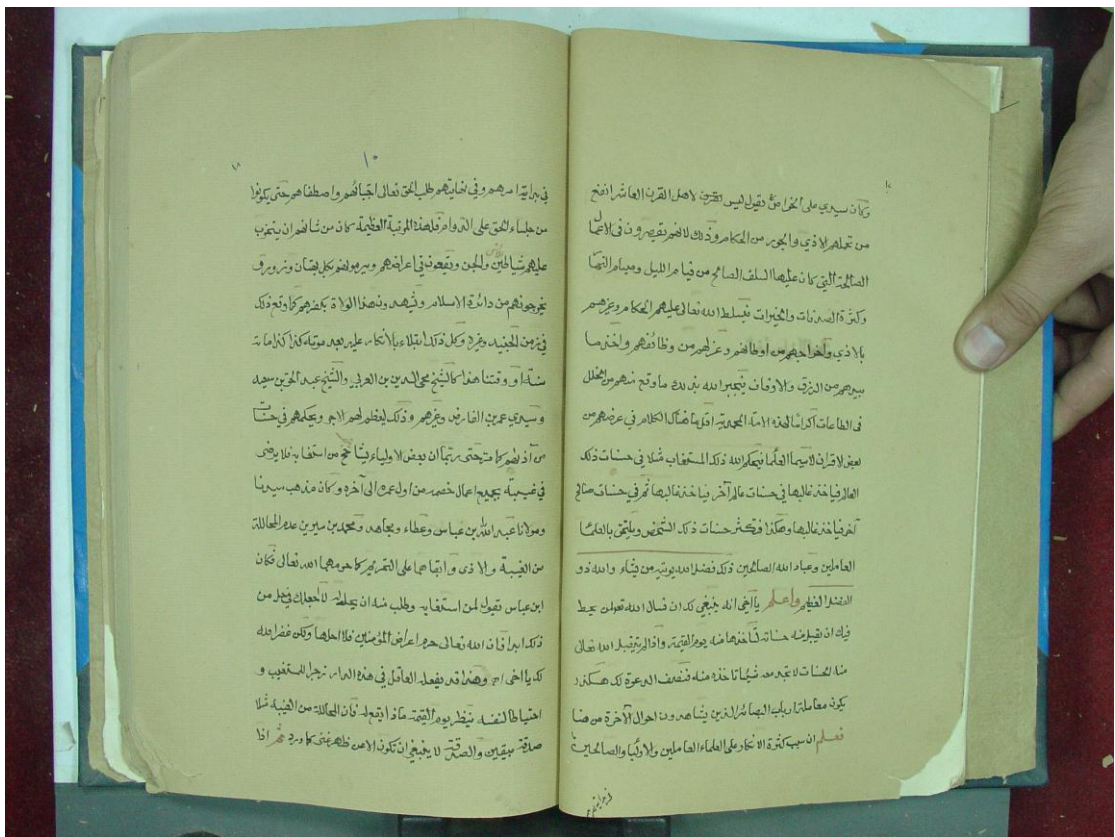 وكان سيدي علي الخواص يقول ليس لاهل القرن العاشر انفع
من تحملهم الاذي والجور من الحكام وذلك لانهم يقصرون في الاعمال
الصالحة التي كان عليها السلف الصالح من قيام الليل وصيام النهار
وكثرة الصدقات والخيرات فيسلط الله تعالى عليهم الحكام وغيرهم
بالاذي واخراجهم من اوطانهم وعزلهم من وظائفهم واخذ ما
بيدهم من الرزق والاوقاف فيجبر الله بذلك ما وقع منهم من الخلل
في الطاعات اكراما لهذه الامة المحمدية اقل ما هناك الكلام في عرضهم من
بعض الاقران لاسيما العلما فيحكم الله ذلك المستغاب مثلا في حسنات ذلك
العالم فياخذ غالبها في حسنات عالم آخر فياخذ غالبها ثم في حسنات صالح
آخر فياخذ غالبها وهكذا فتكثر حسنات ذلك الشخص ويلتحق بالعلماء
العاملين وعباد الله الصالحين ذلك فضل الله يوتيه من يشاء والله ذو
الفضل العظيم واعلم يا اخي انه ينبغي لك ان تسال الله تعالى
فيك ان يقبل منه حسناته لتاخذها منه يوم القيمة واذا لم يتقبل الله تعالى
منه الحسنات لا تجد معه شيئا تاخذه منه
يكون معاملة ارباب البصائر الذين يشاهدون احوال الآخرة من هنا
فعلم ان سبب كثرة الانكار على العلماء العاملين والاوليا والصالحين
١٠
في بداية امرهم وفي نهايتهم طلب الحق تعالى اجتباهم واصطفاهم حتى يكونوا
من جلساء الحق على الدوام فلهذه المرتبة العظيمة كان من شانهم ان يتحزب
عليهم شياطين الانس والجن ويقعون في اعراضهم ويرمونهم بكل بهتان وزور
يخرجونهم من دائرة الاسلام ويشهدون هذا الولاة بكفرهم كما وقع ذلك
في زمن الجنيد وغيره وكل ذلك ابقلاء بالانكار عليه بعد موته كذا كذا مائة
سنة او وقتنا هذا كالشيخ محي الدين بن العربي والشيخ عبد الحق بن سبعين
وسيدي عمر بن الفارض وغيرهم وذلك ليعظم لهم الاجر ويحكمهم في حسنات
من آذاهم كما مر حتى ربما ان بعض الاولياء يشاحح من استغابه فلا يرضى
في غيبته بجميع اعمال خصمه من اول عمره الى آخره وكان مذهب سيدنا
ومولانا عبد الله بن عباس وعطاء ومجاهد ومحمد بن سيرين عدم المحاللة
من الغيبة والاذى وابقاهما على التحريم كما حرمهما الله تعالى فكان
ابن عباس يقول لمن استغابه وطلب منه ان يحلله لا اجعلك في حل من
ذلك ابدا فان الله تعالى حرم اعراض المؤمنين فلا احلها ولكن غفر الله
لك يا اخي وهذا قد يفعله العاقل في هذه الدار زجرا للمستغيب و
احتياطا لنفسه ينظر يوم القيمة ماذا يقع له فان المحاللة من الغيبة مثلا
صدقة بيقين والصدقة لا ينبغي ان تكون الا من ظهر غنى كما ورد ثم اذا